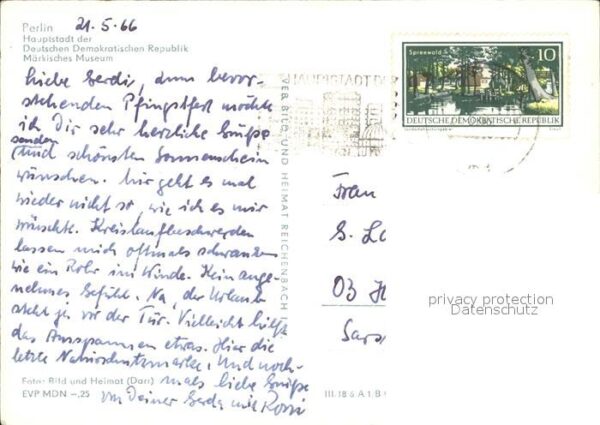 Berlin 21.5.66
Hauptstadt der
Deutschen Demokratischen Republik
Märkisches Museum
Liebe Gerdi, zum bevor-
stehenden Pfingstfest möchte
ich Dir sehr herzliche Grüße
senden
und schönsten Sonnenschein
wünschen. Mir geht es mal
wieder nicht so, wie ich es mir
wünschte. Kreislaufbeschwerden
lassen mich oftmals schwanken
wie ein Rohr im Winde. Kein ange-
nehmes Gefühl. Na, der Urlaub
steht ja vor der Tür. Vielleicht hilft
das Ausspannen etwas. Hier die
letzte Naturschutzmarke. Und noch-
mals liebe Grüße
von Deiner Gerda mit Rosi
Foto: Bild und Heimat (Darr)
EVP MDN -,25
VEB BILD UND HEIMAT REICHENBACH I.
III 18 6 A 1 B
HAUPTSTADT DER
Spreewald
10
DEUTSCHE DEMOKRATISCHE REPUBLIK
Frau
G. Le
03 H
Sars
privacy protection
Datenschutz